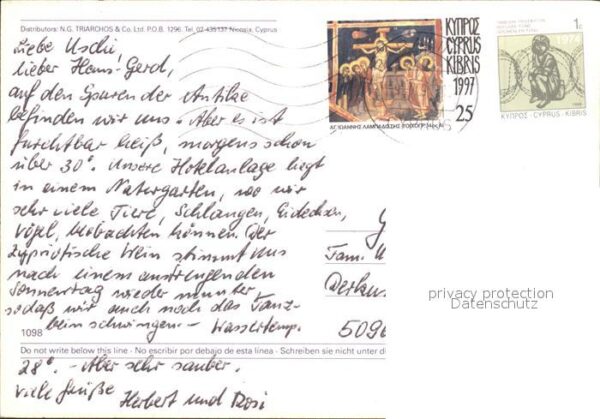 Distributors: N.G. TRIARCHOS & Co. Ltd. P.O.B. 1296. Tel. 02-435137 Nicosia, Cyprus
Liebe Uschi!
lieber Hans-Gerd,
auf den Spuren der Antike
befinden wir uns. Aber es ist
furchtbar heiß, morgens schon
über 30°. Unsere Hotelanlage liegt
in einem Naturgarten, wo wir
sehr viele Tiere, Schlangen, Eidechsen,
Vögel, beobachten können. Der
zypriotische Wein stimmt uns
nach einem anstrengenden
Sonnentag wieder munter,
sodaß wir auch noch das Tanz-
bein schwingen. - Wassertemp.
1098
Do not write below this line - No escribir por debajo de esta línea - Schreiben sie nicht unter di
28°. - Aber sehr sauber.
viele Grüße
Herbert und Rosi
ΚΥΠΡΟΣ
CYPRUS
KIBRIS
1997
25
ΑΓ. ΙΩΑΝΝΗΣ ΛΑΜΠΑΔΙΣΤΗΣ
1c
1974
ΚΥΠΡΟΣ · CYPRUS · KIBRIS
Fam.
5090
privacy protection
Datenschutz